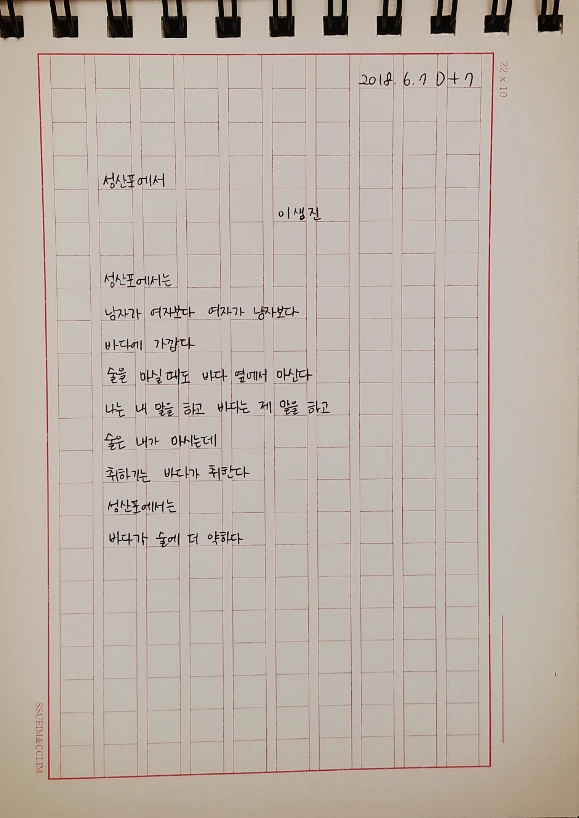 2018. 6. 7 D+7
22 x 10
성산포에서
이생진
성산포에서는
남자가 여자보다 여자가 남자보다
바다에 가깝다
술을 마실 때도 바다 옆에서 마신다
나는 내 말을 하고 바다는 제 말을 하고
술은 내가 마시는데
취하기는 바다가 취한다
성산포에서는
바다가 술에 더 약하다
SSUEIM&CCLIM